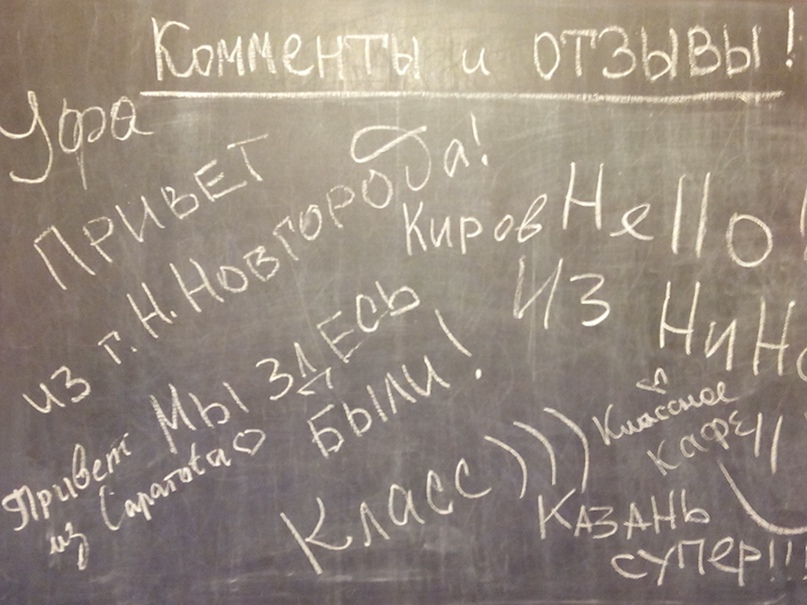 Комменты и отзывы!
Уфа
ПРИВЕТ
из г. Н. Новгорода!
Киров
Hello!
ИЗ
Мы ЗДЕСЬ
БЫЛИ!
Привет
из Саратова
Класс)))
Классное
КАФЕ!!
КАЗАНЬ
СУПЕР!!!